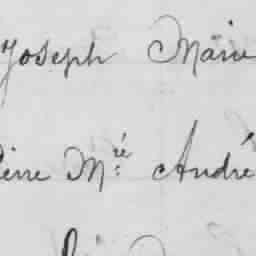 Joseph Marie
Pierre M.ré André